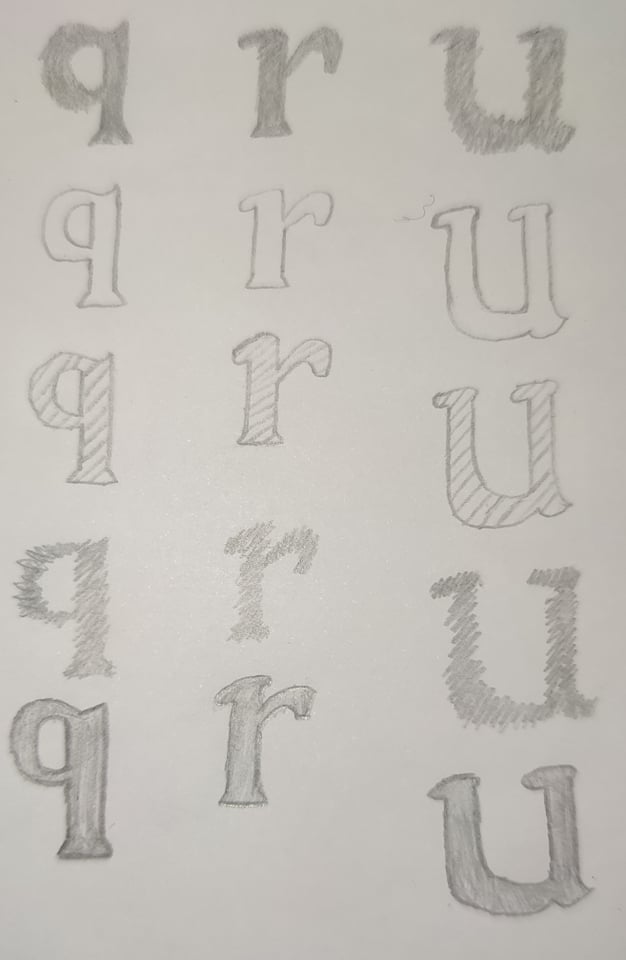 q r u
q r u
q r u
q r u
q r u